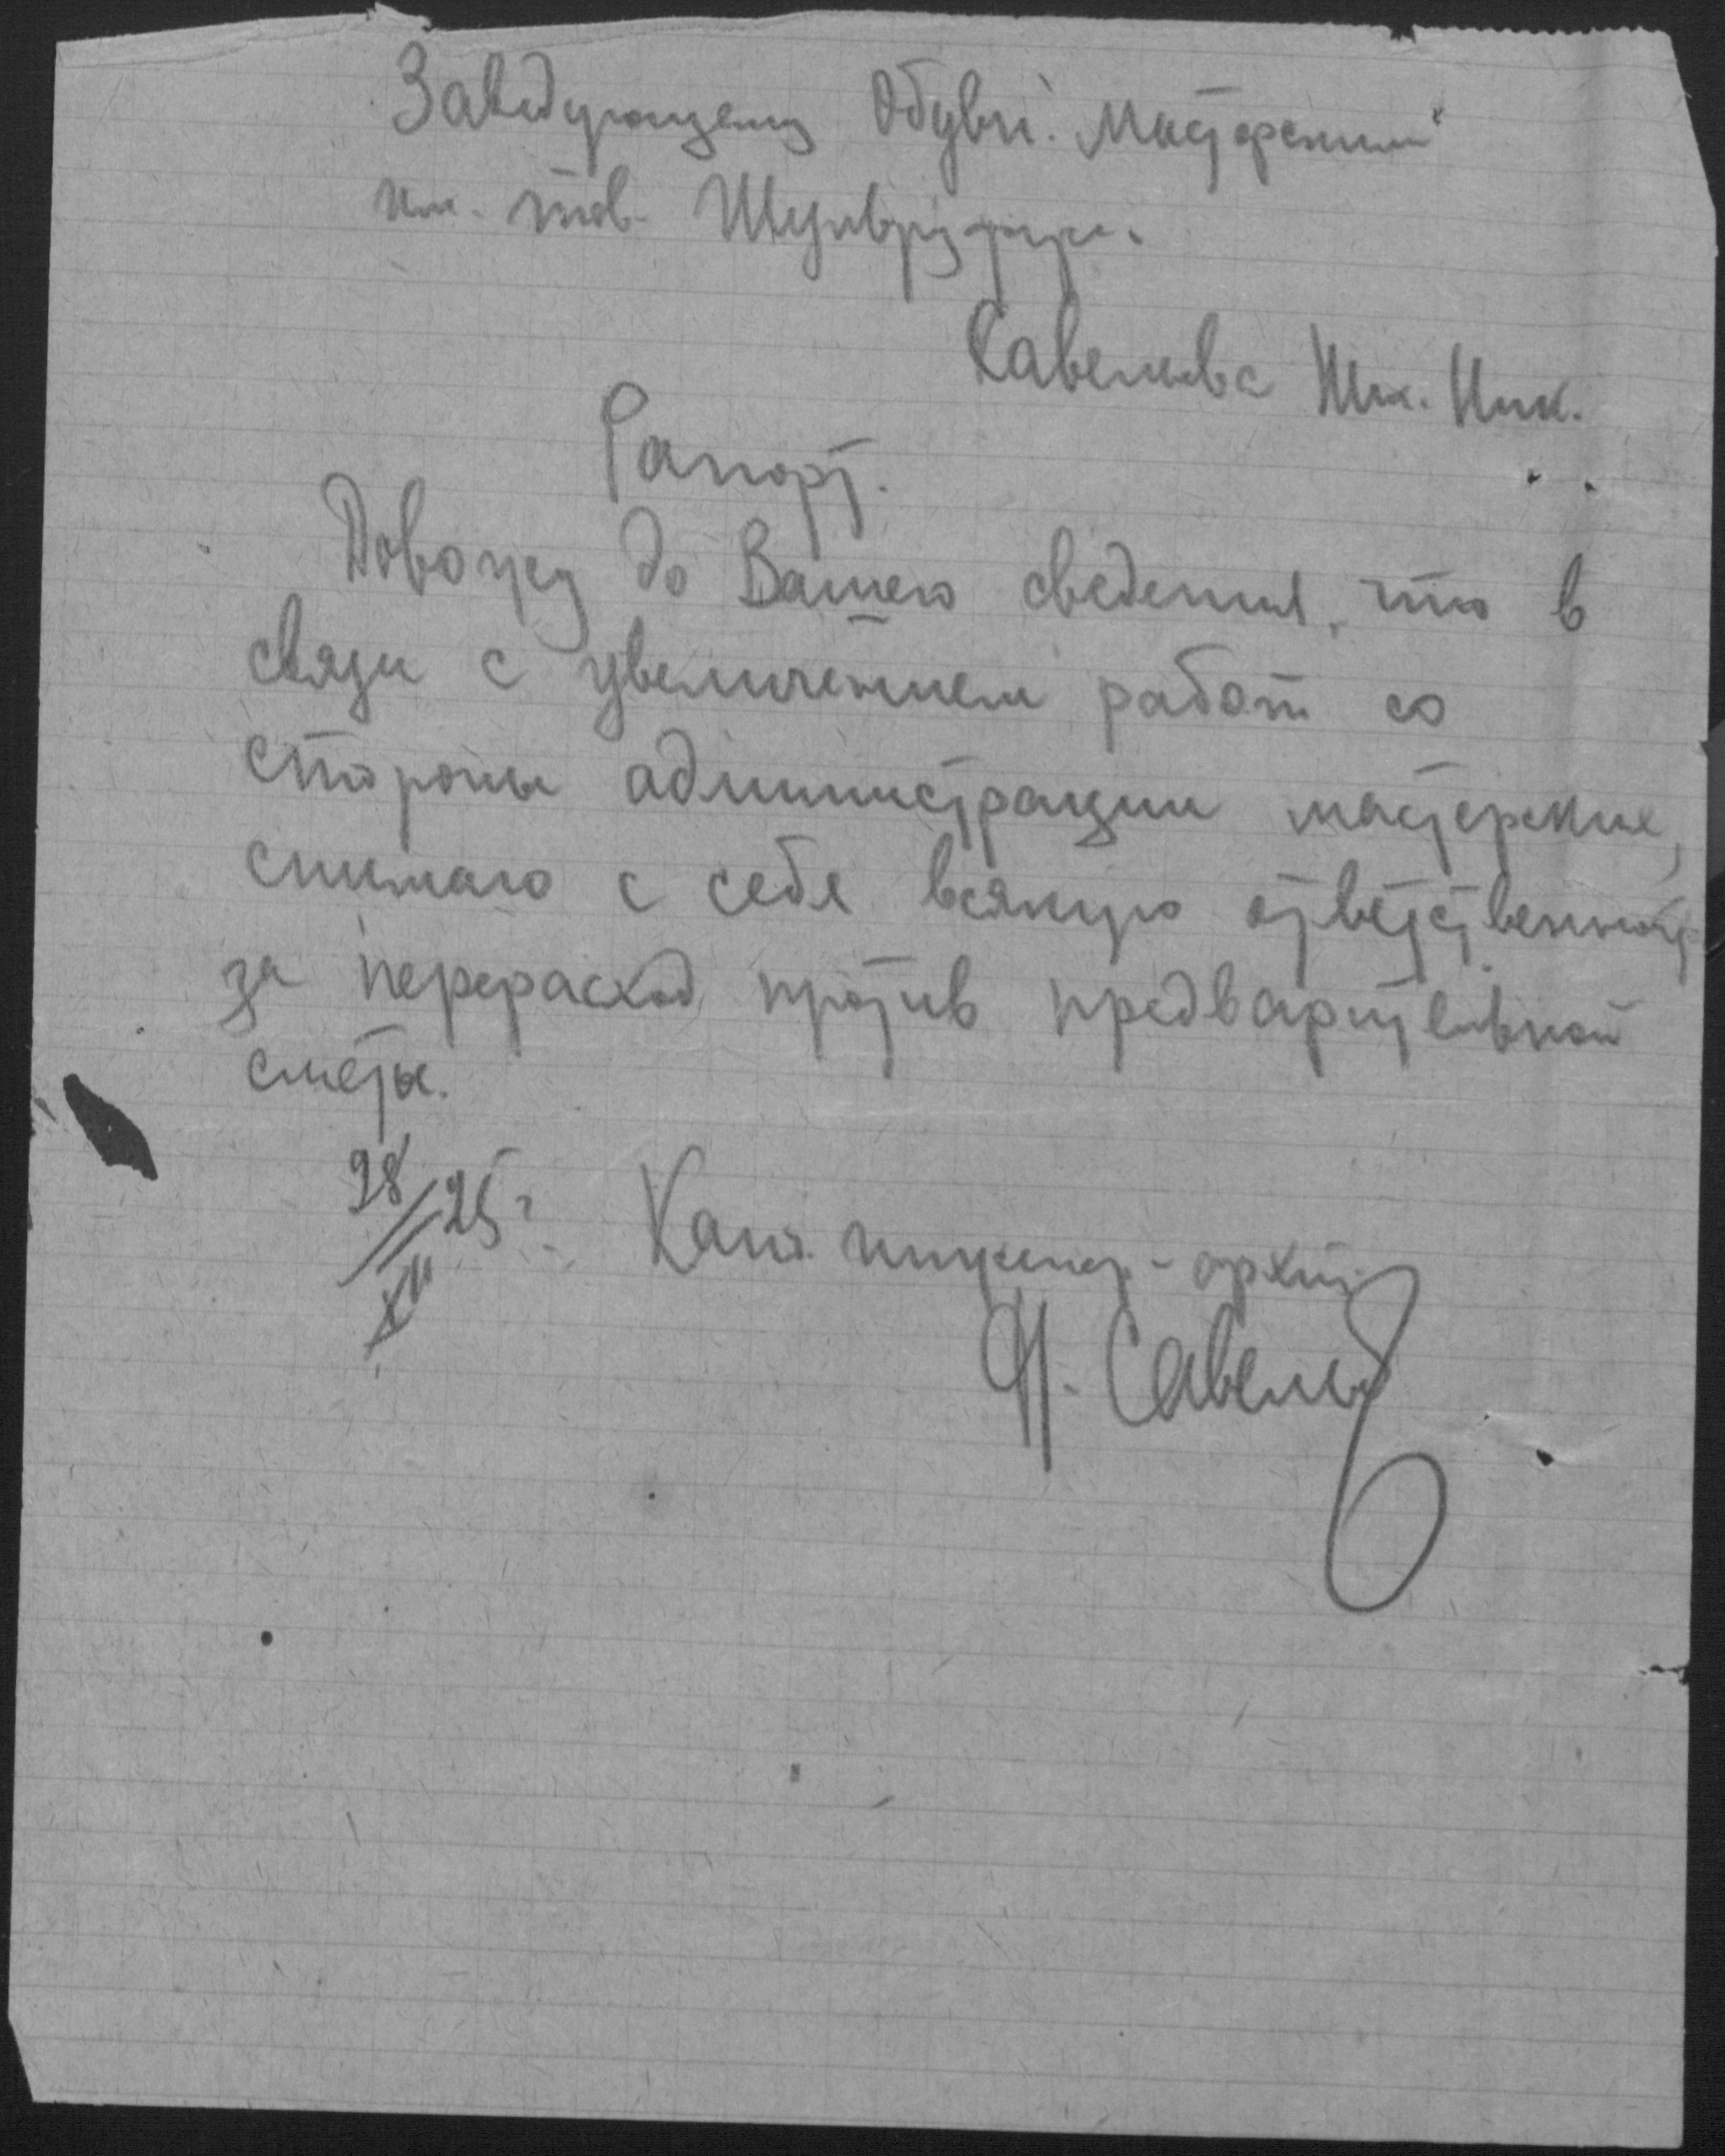 Заведующему Обувн. Мастерским
им. тов.
Савельева Ник.
Рапорт.
Довожу до Вашего сведения, что в
связи с увеличением работ со
стороны администрации мастерские,
снимаю с себя всякую ответственность
за перерасход против предварительной
сметы.
28/XII 25 г. инженер-архит.
Н. Савельев